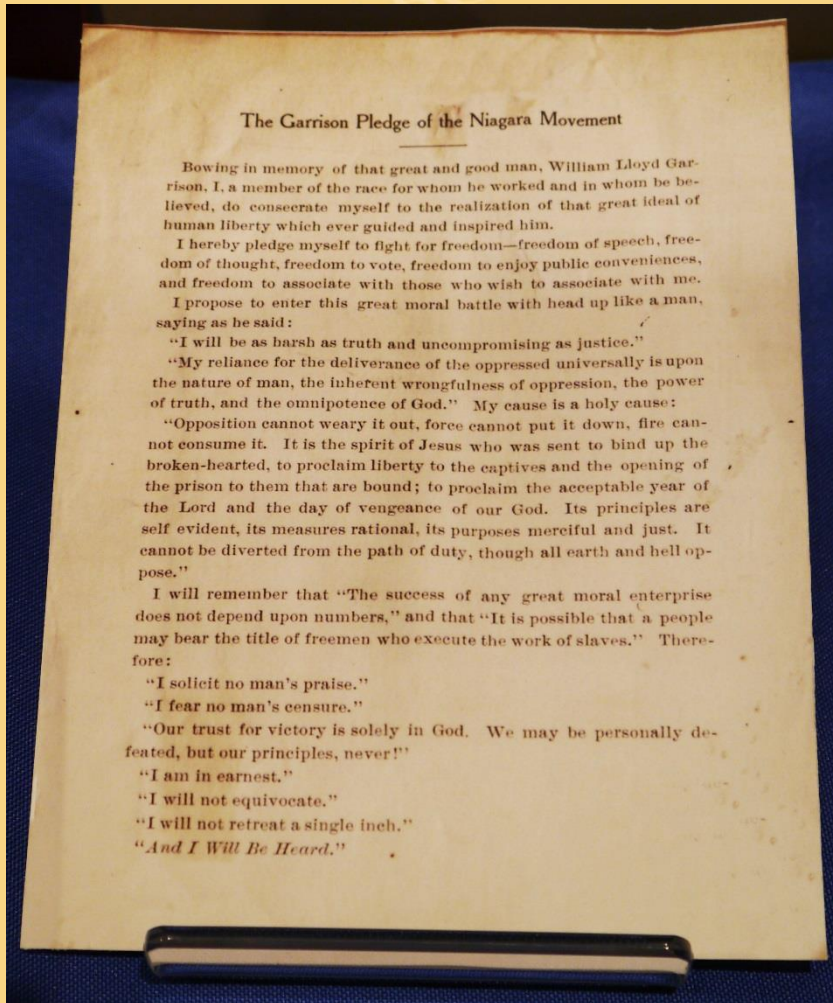 The Garrison Pledge of the Niagara Movement
Bowing in memory of that great and good man, William Lloyd Gar-
rison, I, a member of the race for whom he worked and in whom he be-
lieved, do consecrate myself to the realization of that great ideal of
human liberty which ever guided and inspired him.
I hereby pledge myself to fight for freedom—freedom of speech, free-
dom of thought, freedom to vote, freedom to enjoy public conveniences,
and freedom to associate with those who wish to associate with me.
I propose to enter this great moral battle with head up like a man,
saying as he said:
“I will be as harsh as truth and uncompromising as justice.”
“My reliance for the deliverance of the oppressed universally is upon
the nature of man, the inherent wrongfulness of oppression, the power
of truth, and the omnipotence of God.” My cause is a holy cause:
“Opposition cannot weary it out, force cannot put it down, fire can-
not consume it. It is the spirit of Jesus who was sent to bind up the
broken-hearted, to proclaim liberty to the captives and the opening of
the prison to them that are bound; to proclaim the acceptable year of
the Lord and the day of vengeance of our God. Its principles are
self evident, its measures rational, its purposes merciful and just. It
cannot be diverted from the path of duty, though all earth and hell op-
pose.”
I will remember that “The success of any great moral enterprise
does not depend upon numbers,” and that “It is possible that a people
may bear the title of freemen who execute the work of slaves.” There-
fore:
“I solicit no man's praise.”
“I fear no man's censure.”
“Our trust for victory is solely in God. We may be personally de-
feated, but our principles, never!”
“I am in earnest.”
“I will not equivocate.”
“I will not retreat a single inch.”
“And I Will Be Heard.”